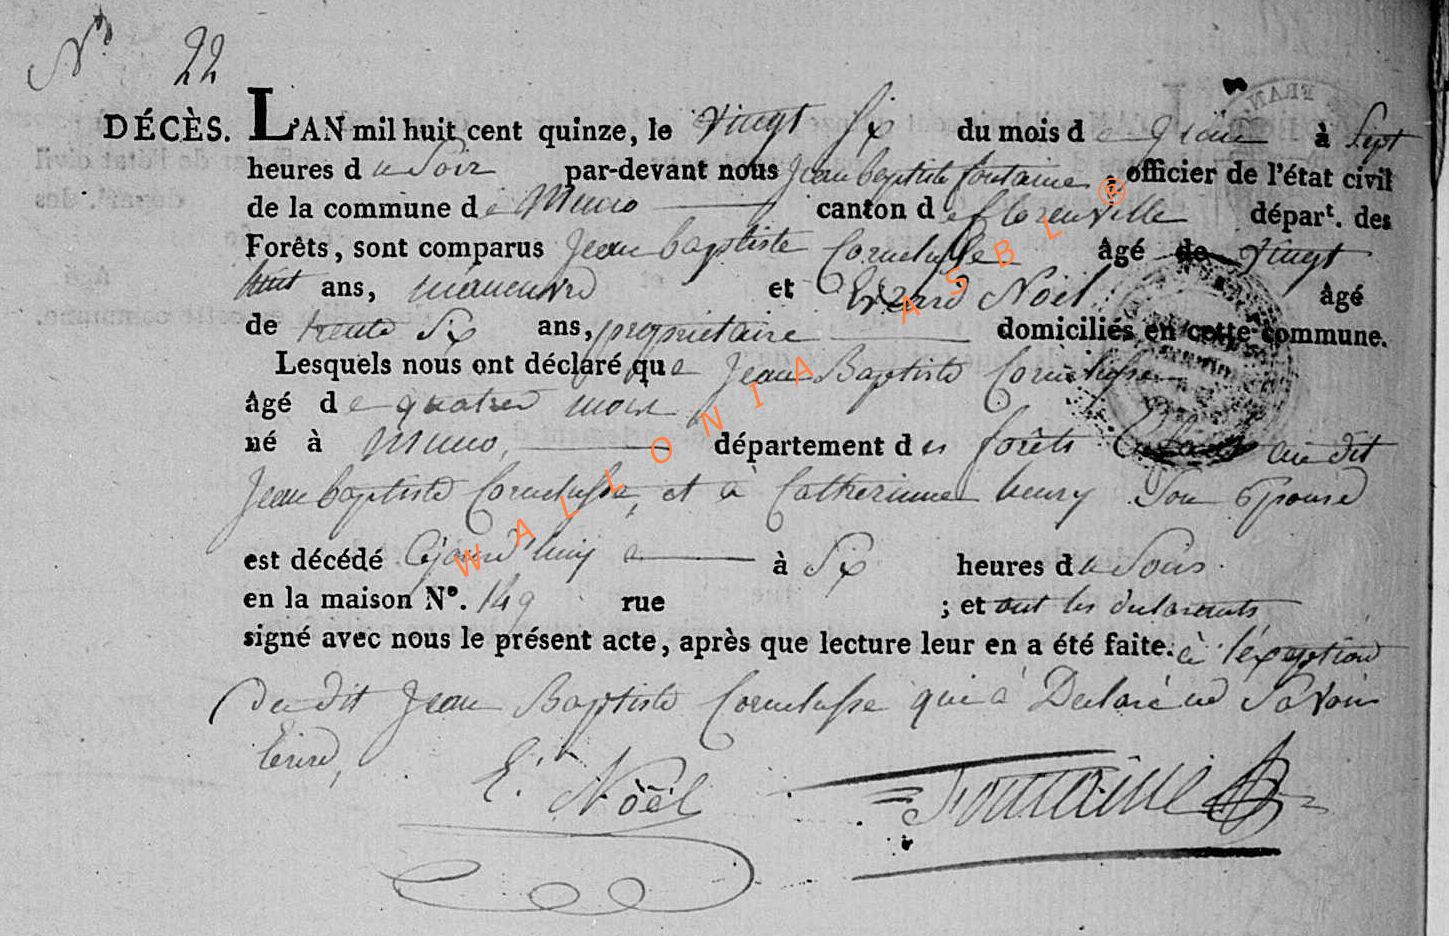 N° 22
DÉCÈS. L'AN mil huit cent quinze, le vingt six du mois de à Sept
heures du Soir par-devant nous Jean baptiste fontaine, officier de l'état civil
de la commune de Muno canton de florenville départ. des
Forêts, sont comparus Jean baptiste Cornelusse âgé de vingt
huit ans, manœuvre et Evrard Noël âgé
de trente Six ans, proprietaire domiciliés en cette commune.
Lesquels nous ont déclaré que Jean Baptiste Cornelusse
âgé de quatre mois
né à Muno, département des forêts au dit
Jean baptiste Cornelusse, et à Catherinne henry Son Epouse
est décédé cejourd'huy à Six heures du Soir.
en la maison N°. 149 rue ; et ont les declarants
signé avec nous le présent acte, après que lecture leur en a été faite. à l'exeption
du dit Jean Baptiste Cornelusse qui à Declaré ne Savoir
Ecrire,
E. Noël Fontaine
WALLONIA ASBL ®